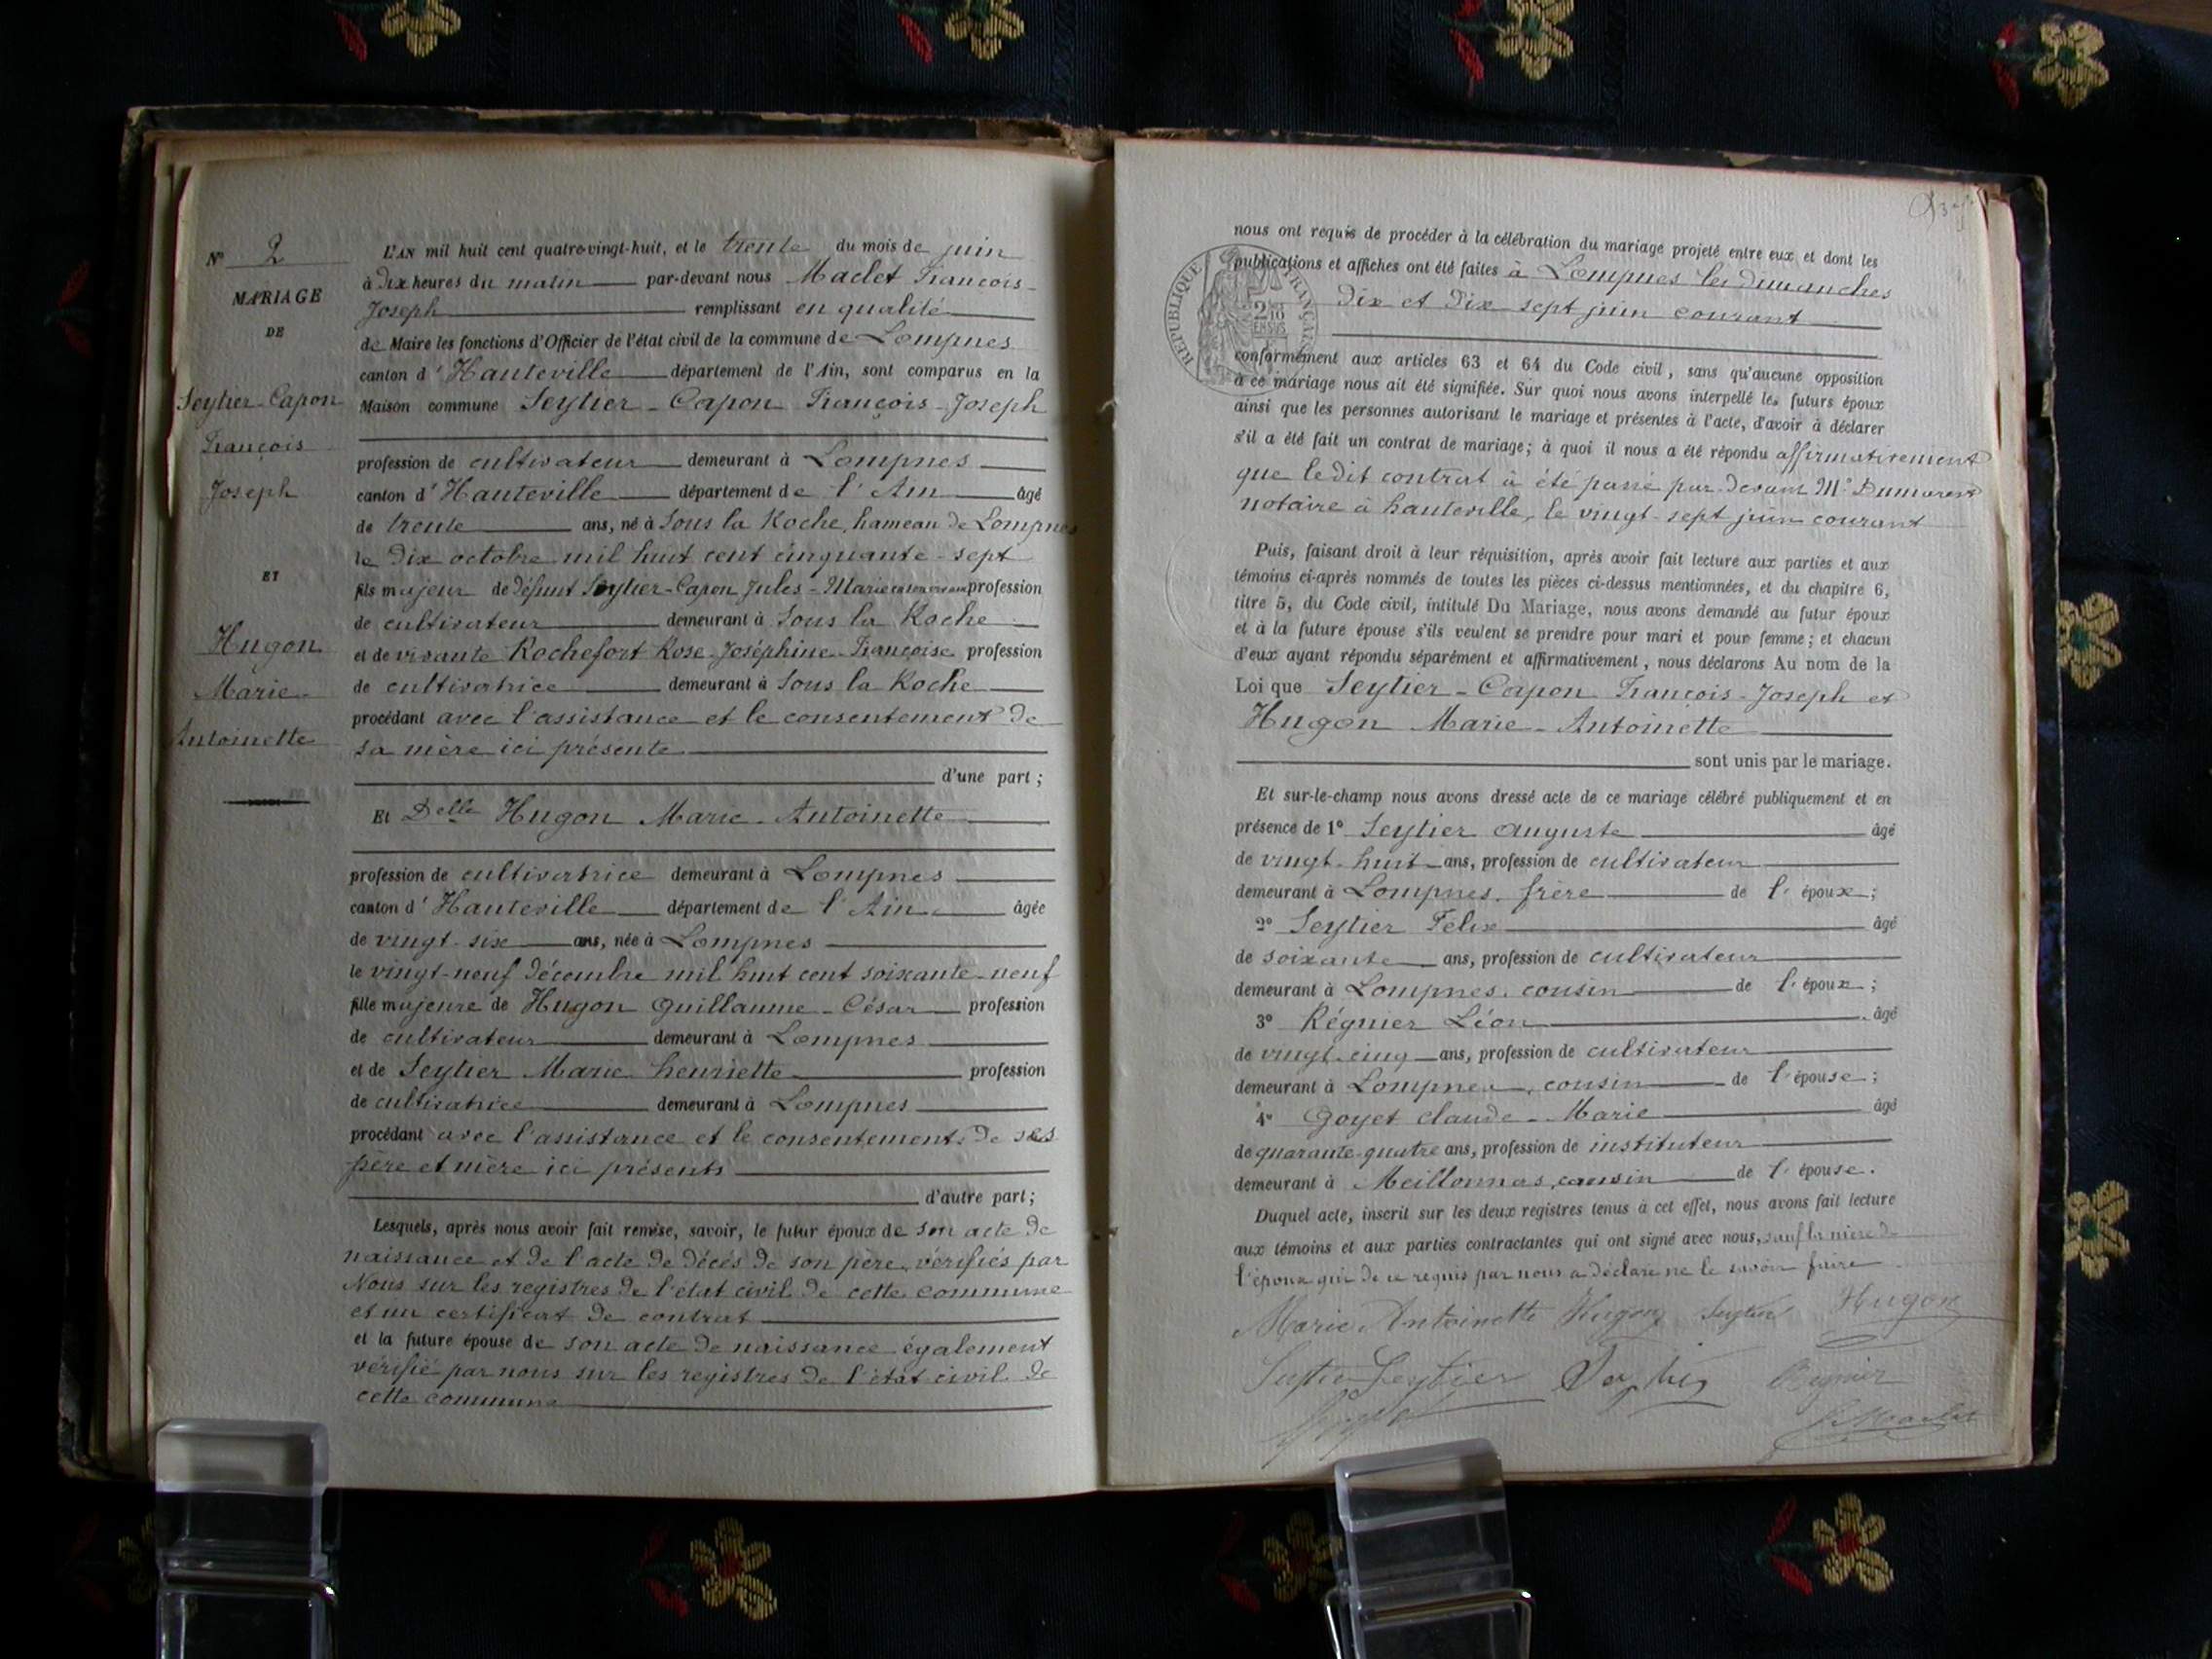 N° 2
MARIAGE
DE
Seytier-Capon
François
Joseph
ET
Hugon
Marie-
Antoinette
L'AN mil huit cent quatre-vingt-huit, et le trente du mois de juin
à dix heures du matin par-devant nous Maclet François-
Joseph remplissant en qualité
de Maire les fonctions d'Officier de l'état civil de la commune de Lompnes
canton d'Hauteville département de l'Ain, sont comparus en la
Maison commune Seytier-Capon François-Joseph
profession de cultivateur demeurant à Lompnes
canton d'Hauteville département de l'Ain âgé
de trente ans, né à Sous la Roche, hameau de Lompnes
le dix octobre mil huit cent cinquante-sept
fils majeur de défunt Seytier-Capon Jules-Marie en son vivant profession
de cultivateur demeurant à Sous la Roche
et de vivante Rochefort Rose-Joséphine-Françoise profession
de cultivatrice demeurant à Sous la Roche
procédant avec l'assistance et le consentement de
sa mère ici présente
d'une part ;
Et Delle Hugon Marie-Antoinette
profession de cultivatrice demeurant à Lompnes
canton d'Hauteville département de l'Ain âgée
de vingt-six ans, née à Lompnes
le vingt-neuf décembre mil huit cent soixante-neuf
fille majeure de Hugon Guillaume-César profession
de cultivateur demeurant à Lompnes
et de Seytier Marie henriette profession
de cultivatrice demeurant à Lompnes
procédant avec l'assistance et le consentement de ses
père et mère ici présents
d'autre part ;
Lesquels, après nous avoir fait remise, savoir, le futur époux de son acte de
naissance et de l'acte de décés de son père, vérifiés par
Nous sur les registres de l'état civil de cette commune
et un certificat de contrat
et la future épouse de son acte de naissance également
vérifié par nous sur les registres de l'état civil de
cette commune
nous ont requis de procéder à la célébration du mariage projeté entre eux et dont les
publications et affiches ont été faites à Lompnes les dimanches
dix et dix sept juin courant
RÉPUBLIQUE FRANÇAISE
conformément aux articles 63 et 64 du Code civil, sans qu'aucune opposition
à ce mariage nous ait été signifiée. Sur quoi nous avons interpellé les futurs époux
ainsi que les personnes autorisant le mariage et présentes à l'acte, d'avoir à déclarer
s'il a été fait un contrat de mariage; à quoi il nous a été répondu affirmativement
que ledit contrat à été passé par devant Me Dumarest
notaire à hauteville, le vingt-sept juin courant
Puis, faisant droit à leur réquisition, après avoir fait lecture aux parties et aux
témoins ci-après nommés de toutes les pièces ci-dessus mentionnées, et du chapitre 6,
titre 5, du Code civil, intitulé Du Mariage, nous avons demandé au futur époux
et à la future épouse s'ils veulent se prendre pour mari et pour femme; et chacun
d'eux ayant répondu séparément et affirmativement, nous déclarons Au nom de la
Loi que Seytier-Capon François-Joseph et
Hugon Marie-Antoinette
sont unis par le mariage.
Et sur-le-champ nous avons dressé acte de ce mariage célébré publiquement et en
présence de 1° Seytier auguste âgé
de vingt-huit ans, profession de cultivateur
demeurant à Lompnes, frère de l'époux;
2° Seytier Félix âgé
de soixante ans, profession de cultivateur
demeurant à Lompnes, cousin de l'époux;
3° Régnier Léon âgé
de vingt-cinq ans, profession de cultivateur
demeurant à Lompnes, cousin de l'épouse;
4° Goyet claude-Marie âgé
de quarante-quatre ans, profession de instituteur
demeurant à Meillonnas, cousin de l'épouse.
Duquel acte, inscrit sur les deux registres tenus à cet effet, nous avons fait lecture
aux témoins et aux parties contractantes qui ont signé avec nous, sauf la mère de
l'époux qui de ce requis par nous a déclaré ne le savoir faire
Marie Antoinette Hugon Seytier Hugon
Seytier Seytier Regnier
Goyet Maclet